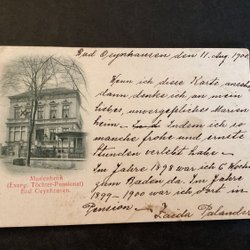 Bad Oeynhausen den 11. Aug. 1900.
Wenn ich diese Karte, ansehe
dann denke ich, an mein
liebes, unvergeßliches Marien-
heim Indem ich so
manche frohe und, ernste
Stunden verlebt habe.
Im Jahre 1898 war ich 6 Woch
zum Baden da. Im Jahre
1899-1900 war ich, dort in
Pension
Marienheim
(Evang. Töchter-Pensionat)
Bad Oeynhausen.